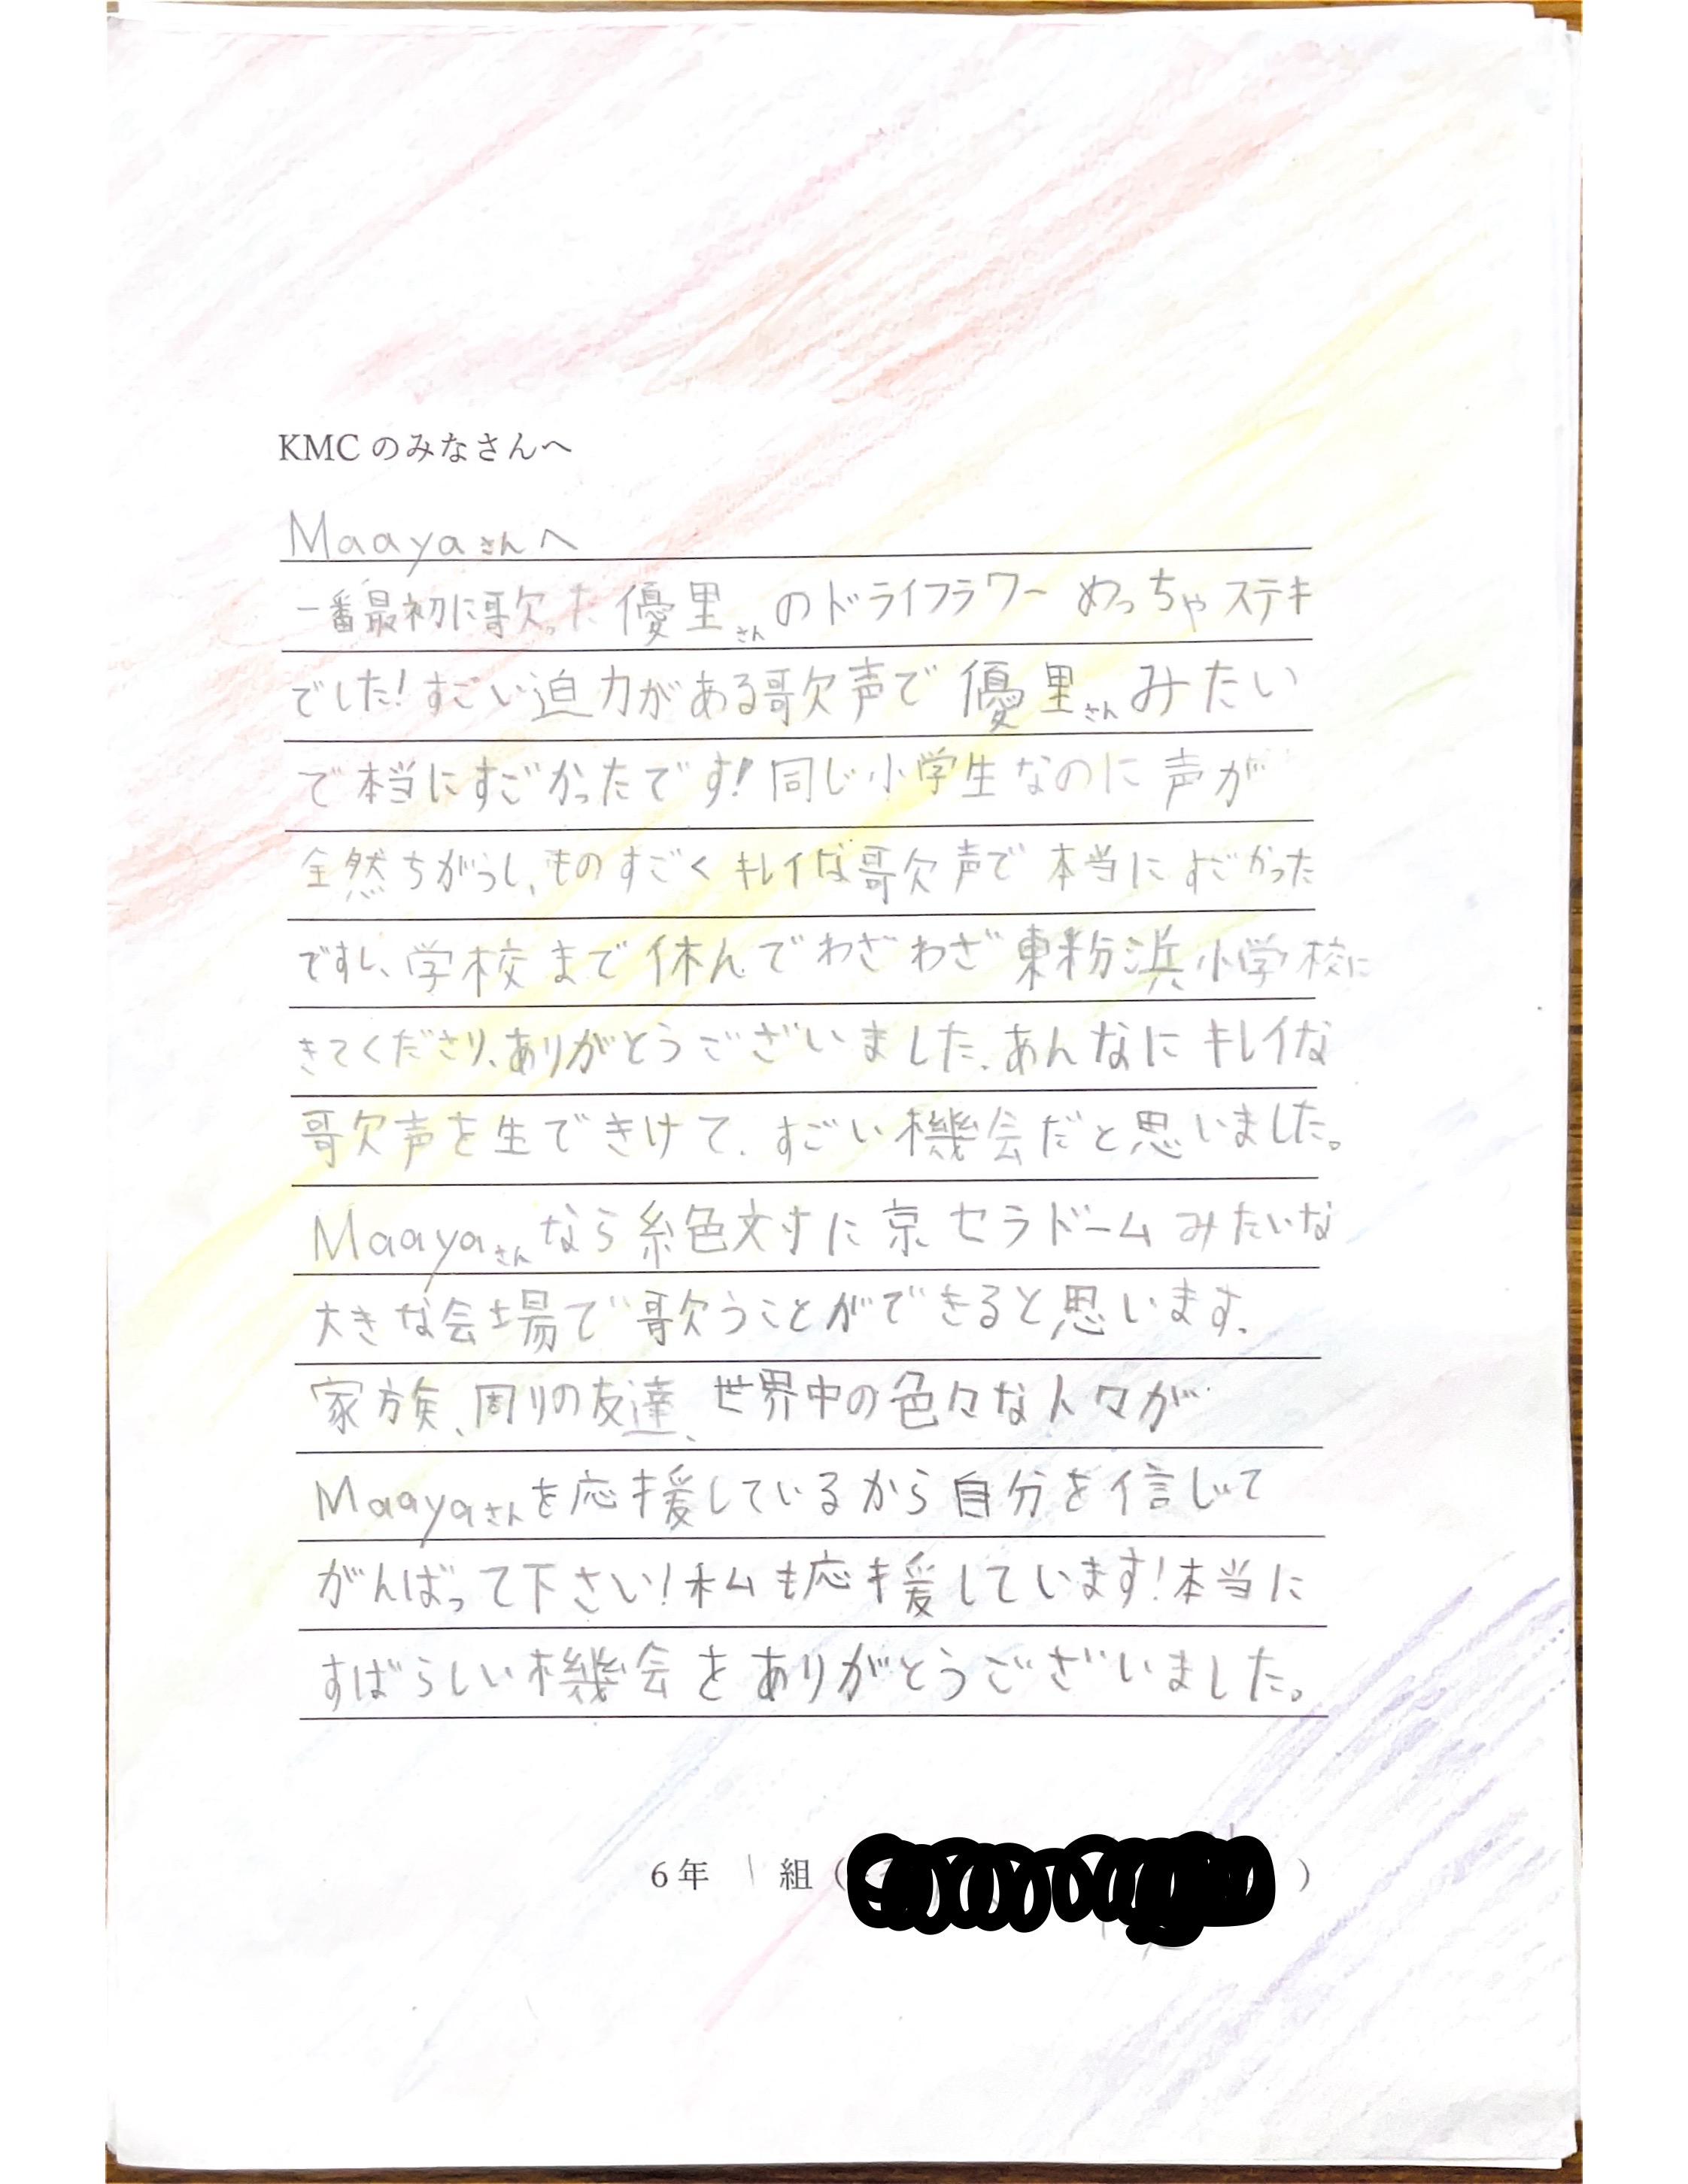 KMCのみなさんへ
Maayaさんへ
一番最初に歌った優里さんのドライフラワーめっちゃステキ
でした!すごい迫力がある歌声で優里さんみたい
で本当にすごかったです!同じ小学生なのに声が
全然ちがうし、ものすごくキレイな歌声で本当にすごかった
ですし、学校まで休んでわざわざ東粉浜小学校に
きてくださり、ありがとうございました、あんなにキレイな
歌声を生できけて、すごい機会だと思いました。
Maayaさんなら絶対に京セラドームみたいな
大きな会場で歌うことができると思います、
家族、周りの友達、世界中の色々な人々が
Maayaさんを応援しているから自分を信じて
がんばって下さい!私も応援しています!本当に
すばらしい機会をありがとうございました。
6年 1 組( )